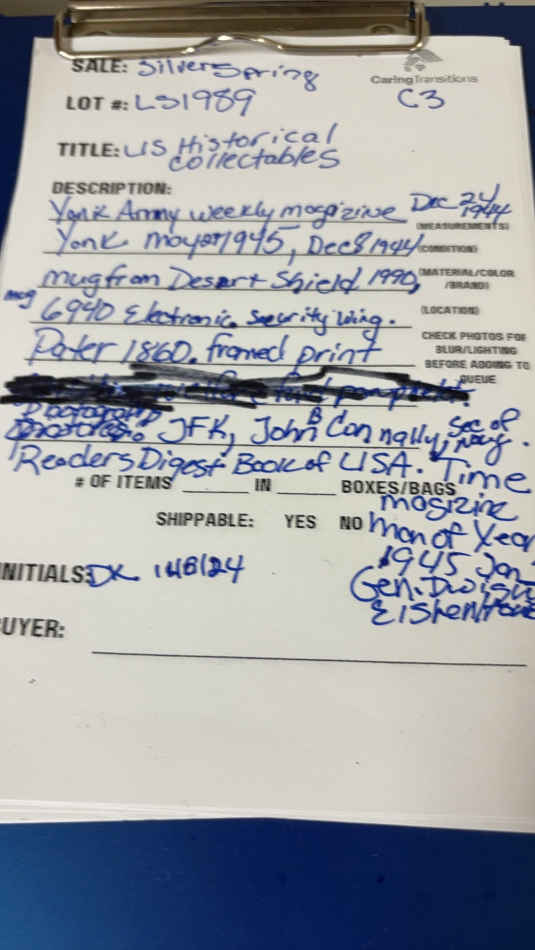 SALE: Silver Spring
CaringTransitions
LOT #: LS1989
C3
TITLE: US Historical
collectables
DESCRIPTION:
Yank Army weekly magizine Dec 24 1944
(MEASUREMENTS)
Yank may 1945, Dec 8 1944
(CONDITION)
mug from Desert Shield 1990,
(MATERIAL/COLOR
/BRAND)
mug 6940 Electronic Security Wing.
(LOCATION)
Pater 1860. framed print
CHECK PHOTOS FOR
BLUR/LIGHTING
BEFORE ADDING TO
QUEUE
Photographs
JFK, John B Connally, Sec of Navy.
1 Readers Digest Book of USA. Time
# OF ITEMS ______ IN ______ BOXES/BAGS
magizine
SHIPPABLE: YES NO
man of Year
1945 Jan
INITIALS: DK
Gen. Dwight
UYER: